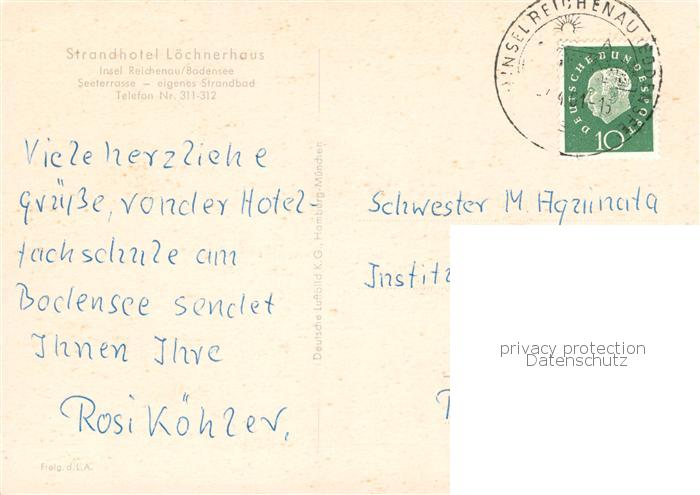 Strandhotel Löchnerhaus
Insel Reichenau/Bodensee
Seeterrasse – eigenes Strandbad
Telefon Nr. 311-312
Viele herzliche
Grüße, von der Hotel-
fachschule am
Bodensee sendet
Ihnen Ihre
Rosi Köhler.
Freig. d. L.A.
Deutsche Luftbild K.G., Hamburg-München
INSEL REICHENAU (BODENSEE)
DEUTSCHE BUNDESPOST
10
Schwester M. Aquinata
Institu
privacy protection
Datenschutz